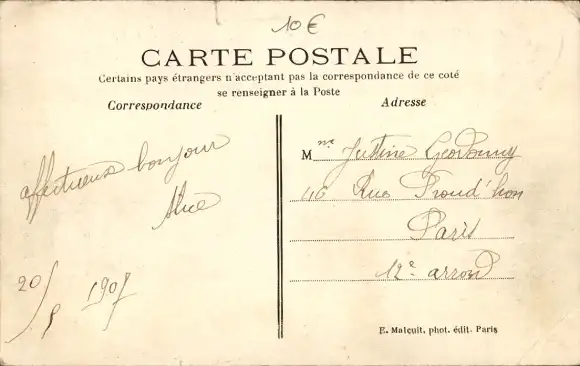 10€
CARTE POSTALE
Certains pays étrangers n'acceptant pas la correspondance de ce coté
se renseigner à la Poste
Correspondance
Adresse
affectueux bonjour
Alice
20/8 1907
Mme Justine
46 Rue Proud'hon
Paris
12e arrond
E. Malcuit, phot. édit. Paris